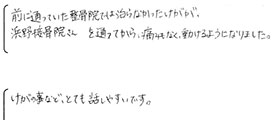 前に通っていた整骨院では治らなかったけがが、
浜野接骨院さん を通ってから、痛みもなく、動けるようになりました。
けがの事など、とても話しやすいです。